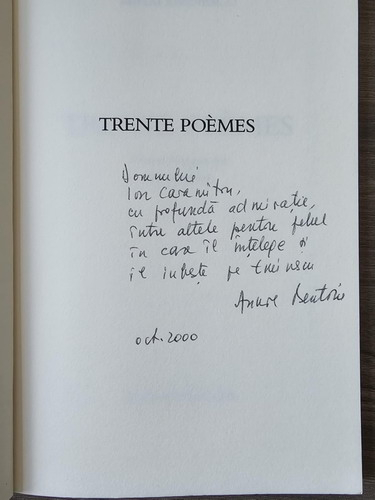 TRENTE POÈMES
Domnului
Ion Caramitru,
cu profundă admirație,
între altele pentru felul
în care îl înțelege și
îl iubește pe Eminescu
oct. 2000